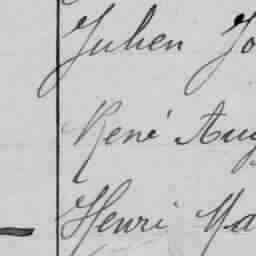 Julien Jo
René Aug
Henri Ma